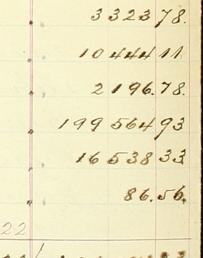 332378.
1044411
2196.78.
19956493
1653833
86.56.
22